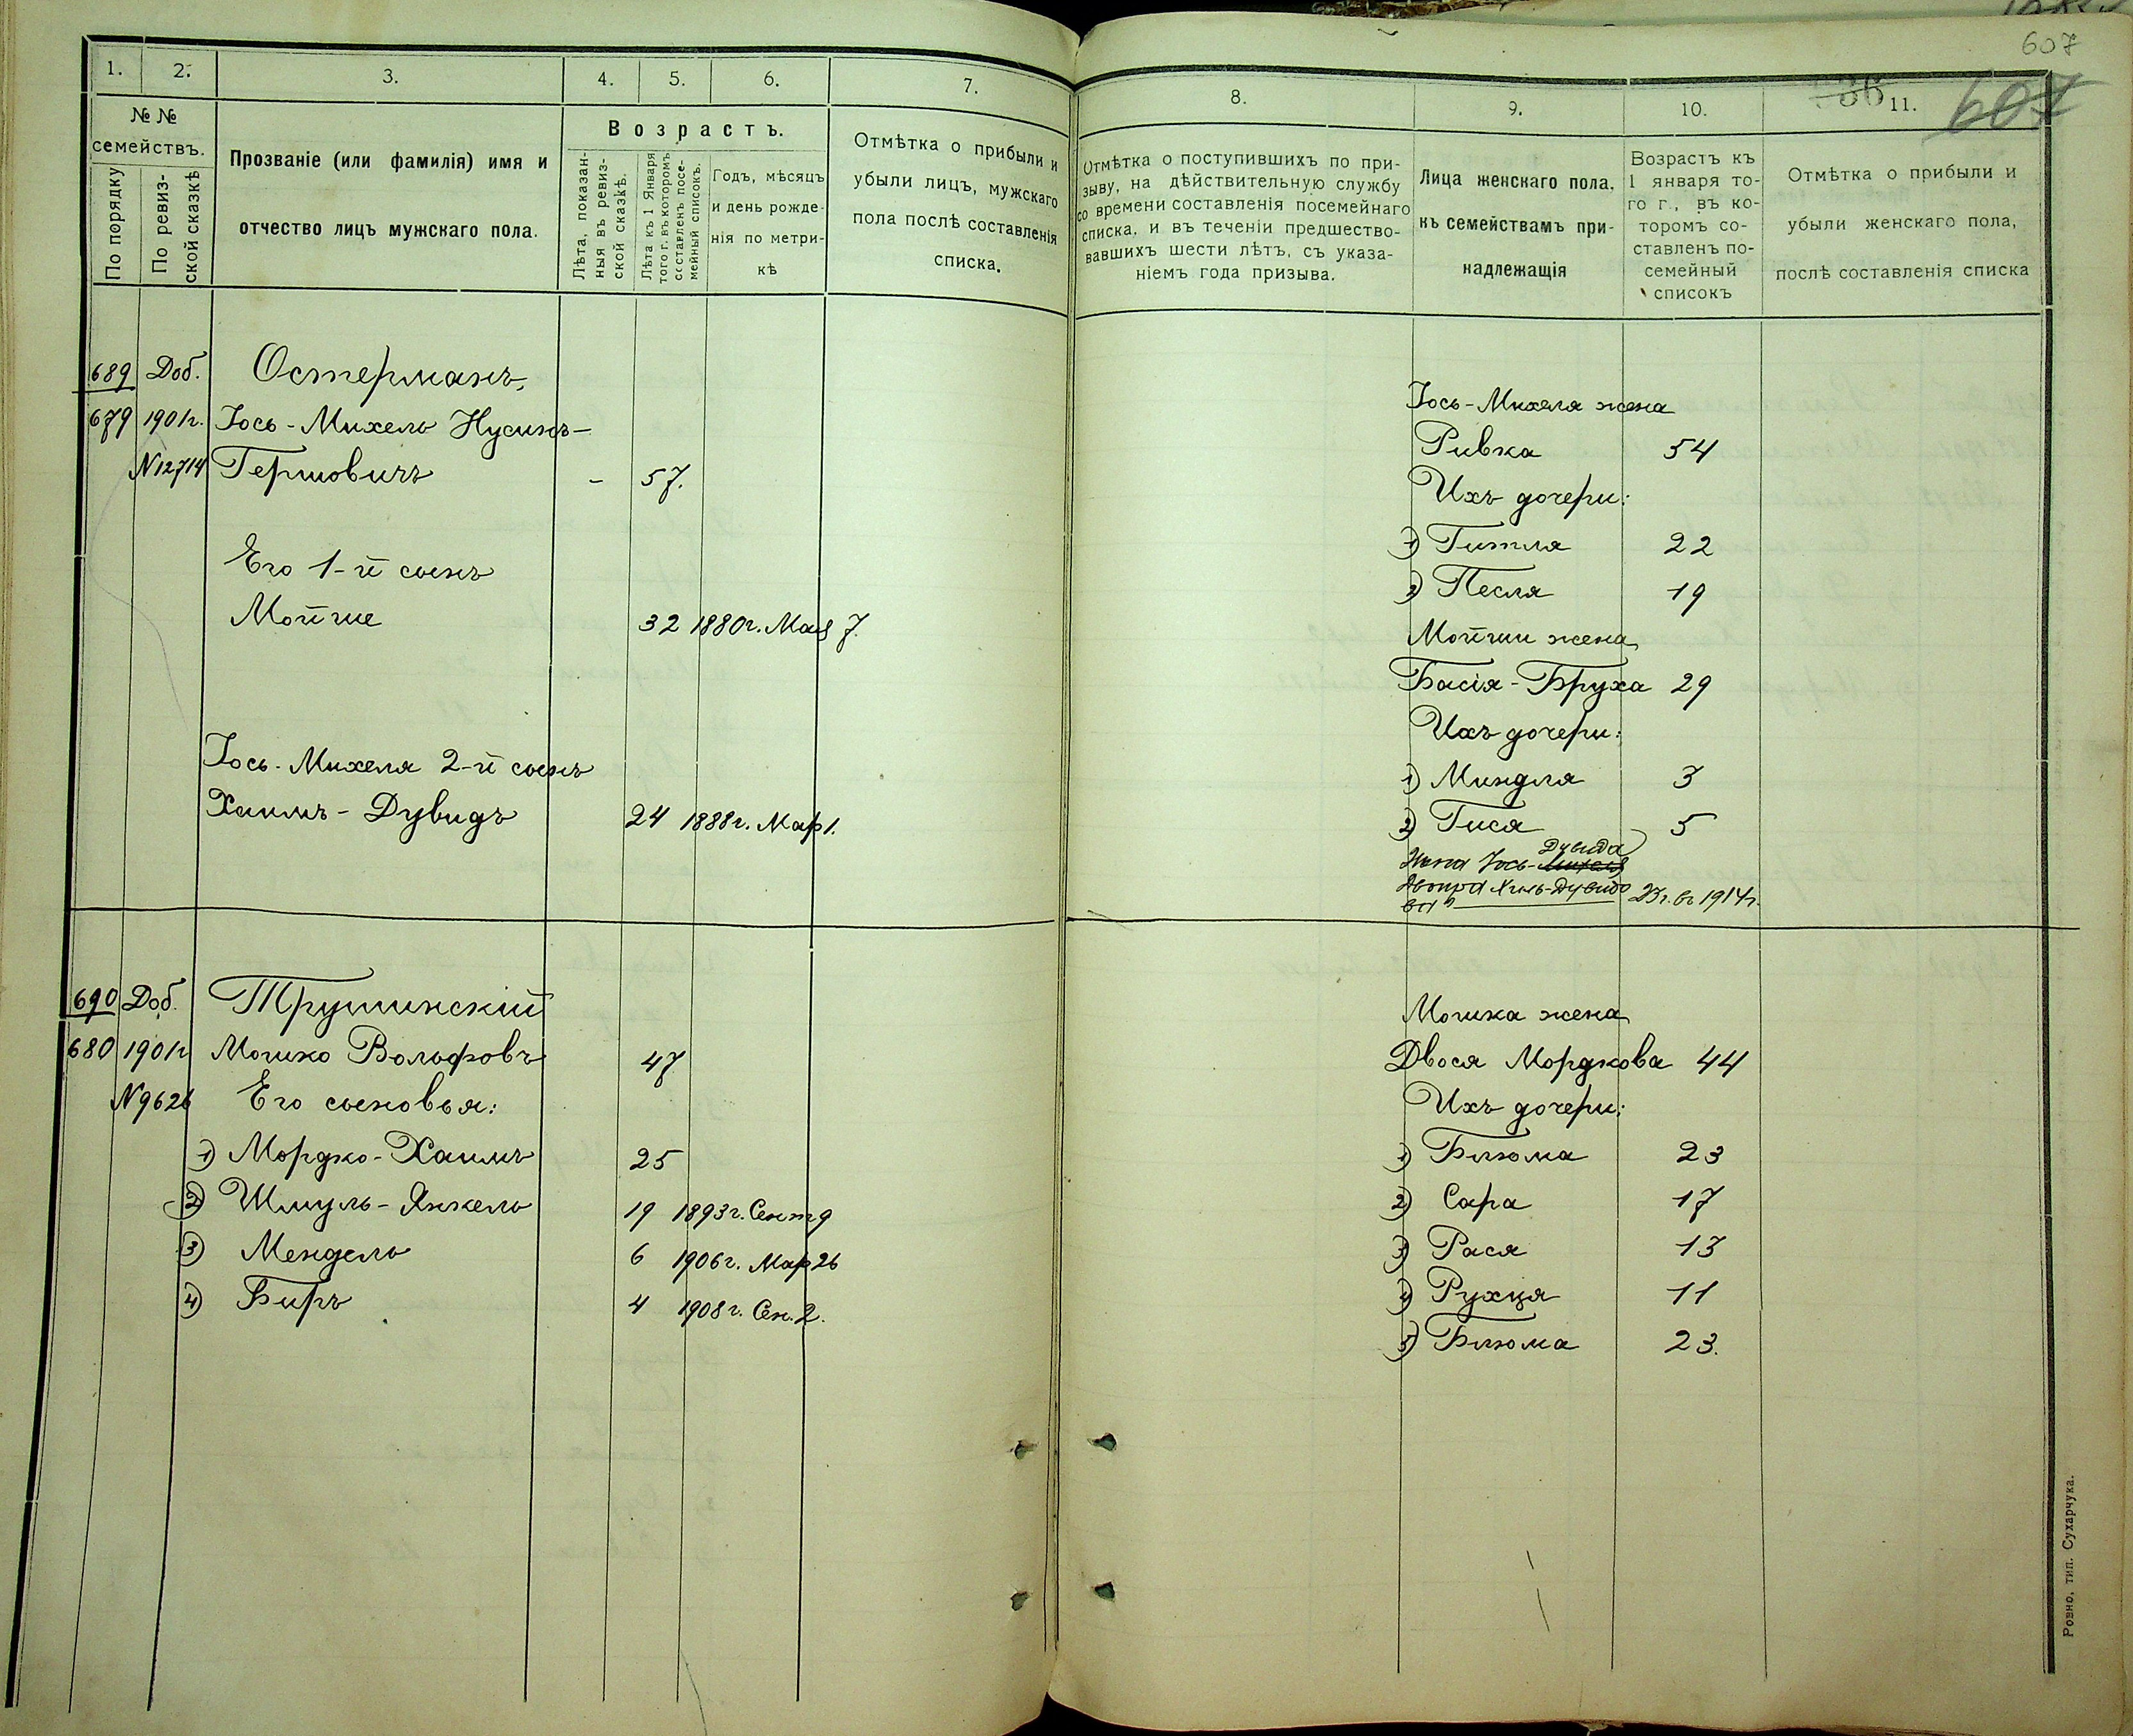 607
607
36
1.
2.
3.
4.
5.
6.
7.
№ №
семействъ.
По порядку
По ревиз-
ской сказкѣ
Прозваніе (или фамилія) имя и
отчество лицъ мужскаго пола.
Возрастъ.
Лѣта, показан-
ныя въ ревиз-
ской сказкѣ.
Лѣта къ 1 Января
того г. въ которомъ
составленъ посе-
мейный списокъ.
Годъ, мѣсяцъ
и день рожде-
нія по метри-
кѣ
Отмѣтка о прибыли и
убыли лицъ, мужскаго
пола послѣ составленія
списка.
689 Доб. Остерманъ,
679 1901г. Іось-Михель Нусинъ-
N12714 Гершовичъ - 57.
Его 1-й сынъ
Мойше 32 1880г. Мая 7.
Іось-Михеля 2-й сынъ
Хаимъ-Дувидъ 24 1888г. Мар 1.
690 Доб. Трушинскій
680 1901г Мошко Вольфовъ 47
N9626 Его сыновья:
1) Мордко-Хаимъ 25
2) Шмуль-Янкель 19 1893г. Сент 9
3) Мендель 6 1906г. Мар 26
4) Биръ 4 1908г. Сен. 2.
8.
9.
10.
11.
Отмѣтка о поступившихъ по при-
зыву, на дѣйствительную службу
со времени составленія посемейнаго
списка, и въ теченіи предшество-
вавшихъ шести лѣтъ, съ указа-
ніемъ года призыва.
Лица женскаго пола,
къ семействамъ при-
надлежащія
Возрастъ къ
1 января то-
го г., въ ко-
торомъ со-
ставленъ по-
семейный
списокъ
Отмѣтка о прибыли и
убыли женскаго пола,
послѣ составленія списка
Іось-Михеля жена
Ривка 54
Ихъ дочери:
1) Гитля 22
2) Песля 19
Мойши жена
Басія-Бруха 29
Ихъ дочери:
1) Миндля 3
2) Гися 5
Дувида
Жена Іось-Михеля
Двойра Хиль-Дувидо
ва 23г. въ 1914г.
Мошка жена
Двося Мордкова 44
Ихъ дочери:
1) Блюма 23
2) Сара 17
3) Рася 13
4) Рухця 11
5) Блюма 23.
Ровно, тип. Сухарчука.